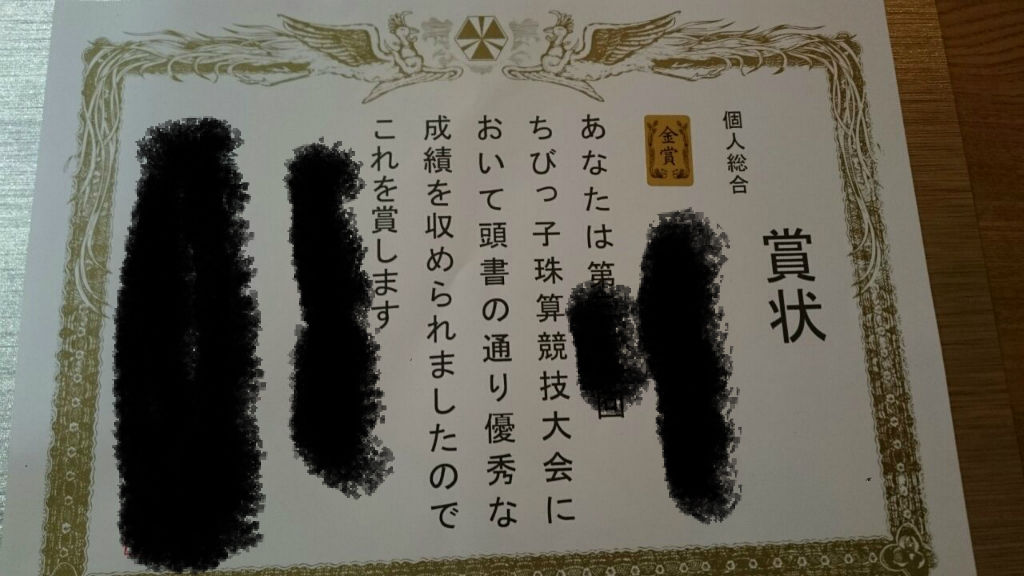 賞状
個人総合
金賞
あなたは第
回
ちびっ子珠算競技大会に
おいて頭書の通り優秀な
成績を収められましたので
これを賞します